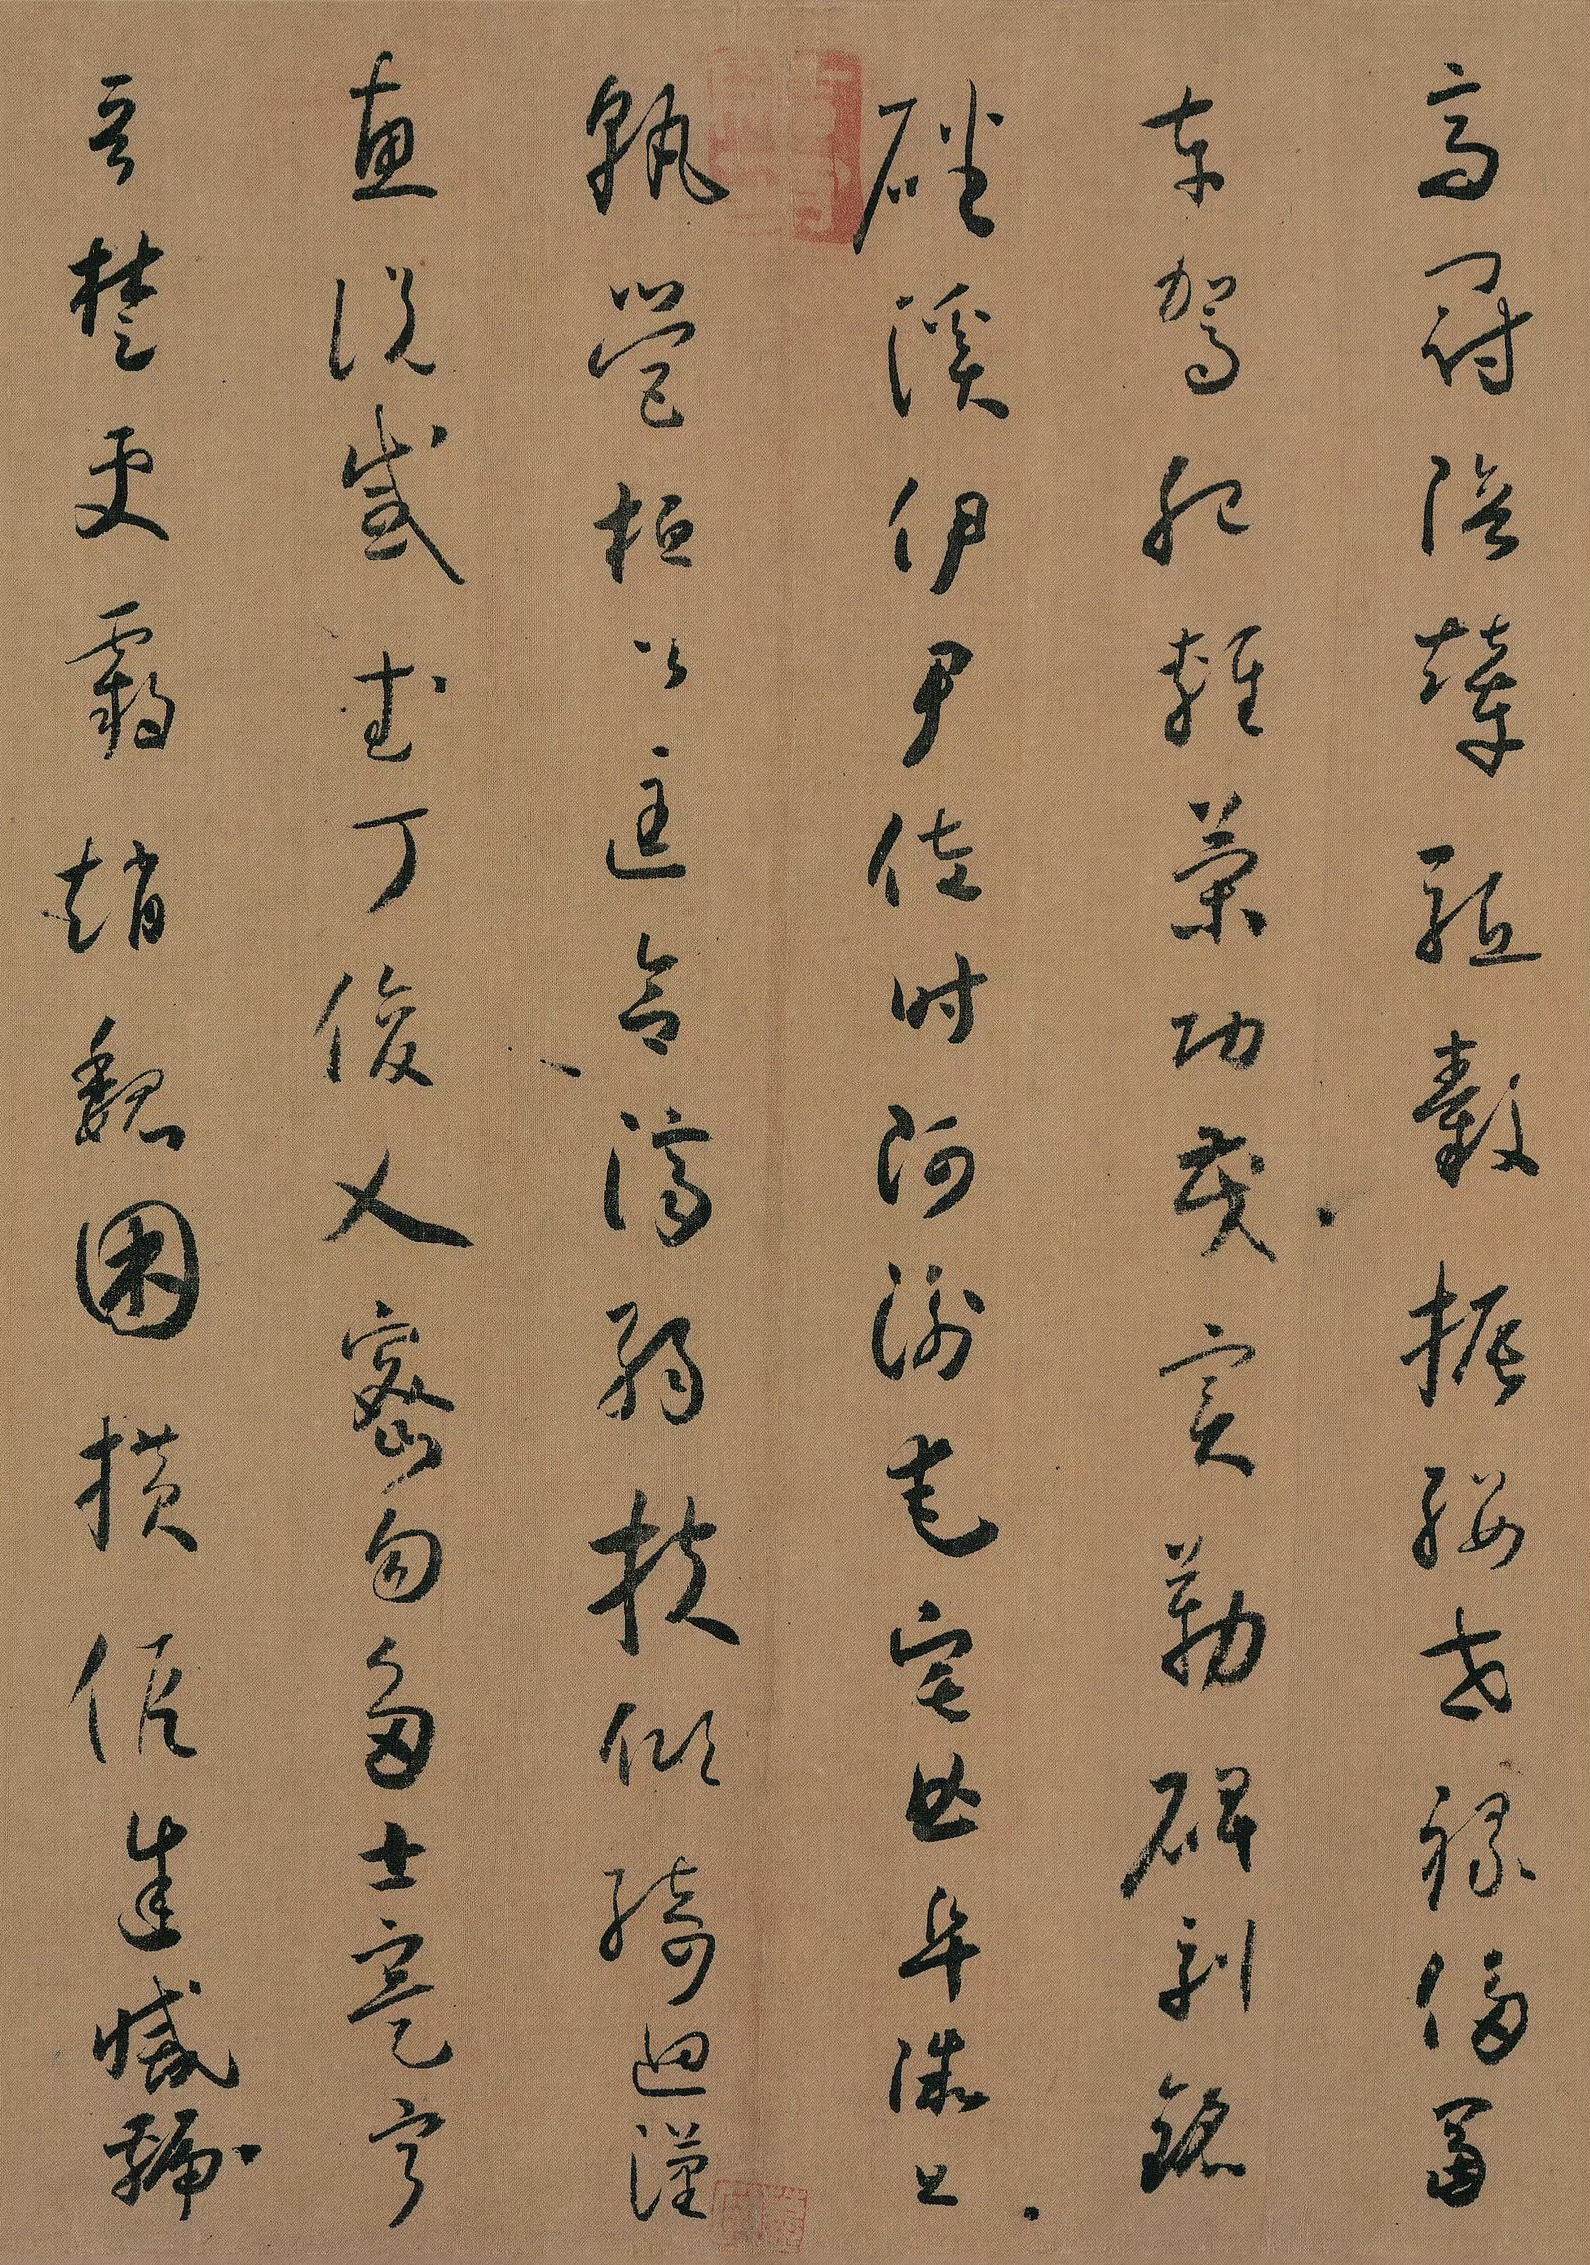 高冠陪輦驅轂振纓世祿侈富
車駕肥輕策功茂實勒碑刻銘
磻溪伊尹佐時阿衡奄宅曲阜微旦
孰營桓公匡合濟弱扶傾綺迴漢
惠說感武丁俊乂密勿多士寔寧
晉楚更霸趙魏困橫假途滅虢